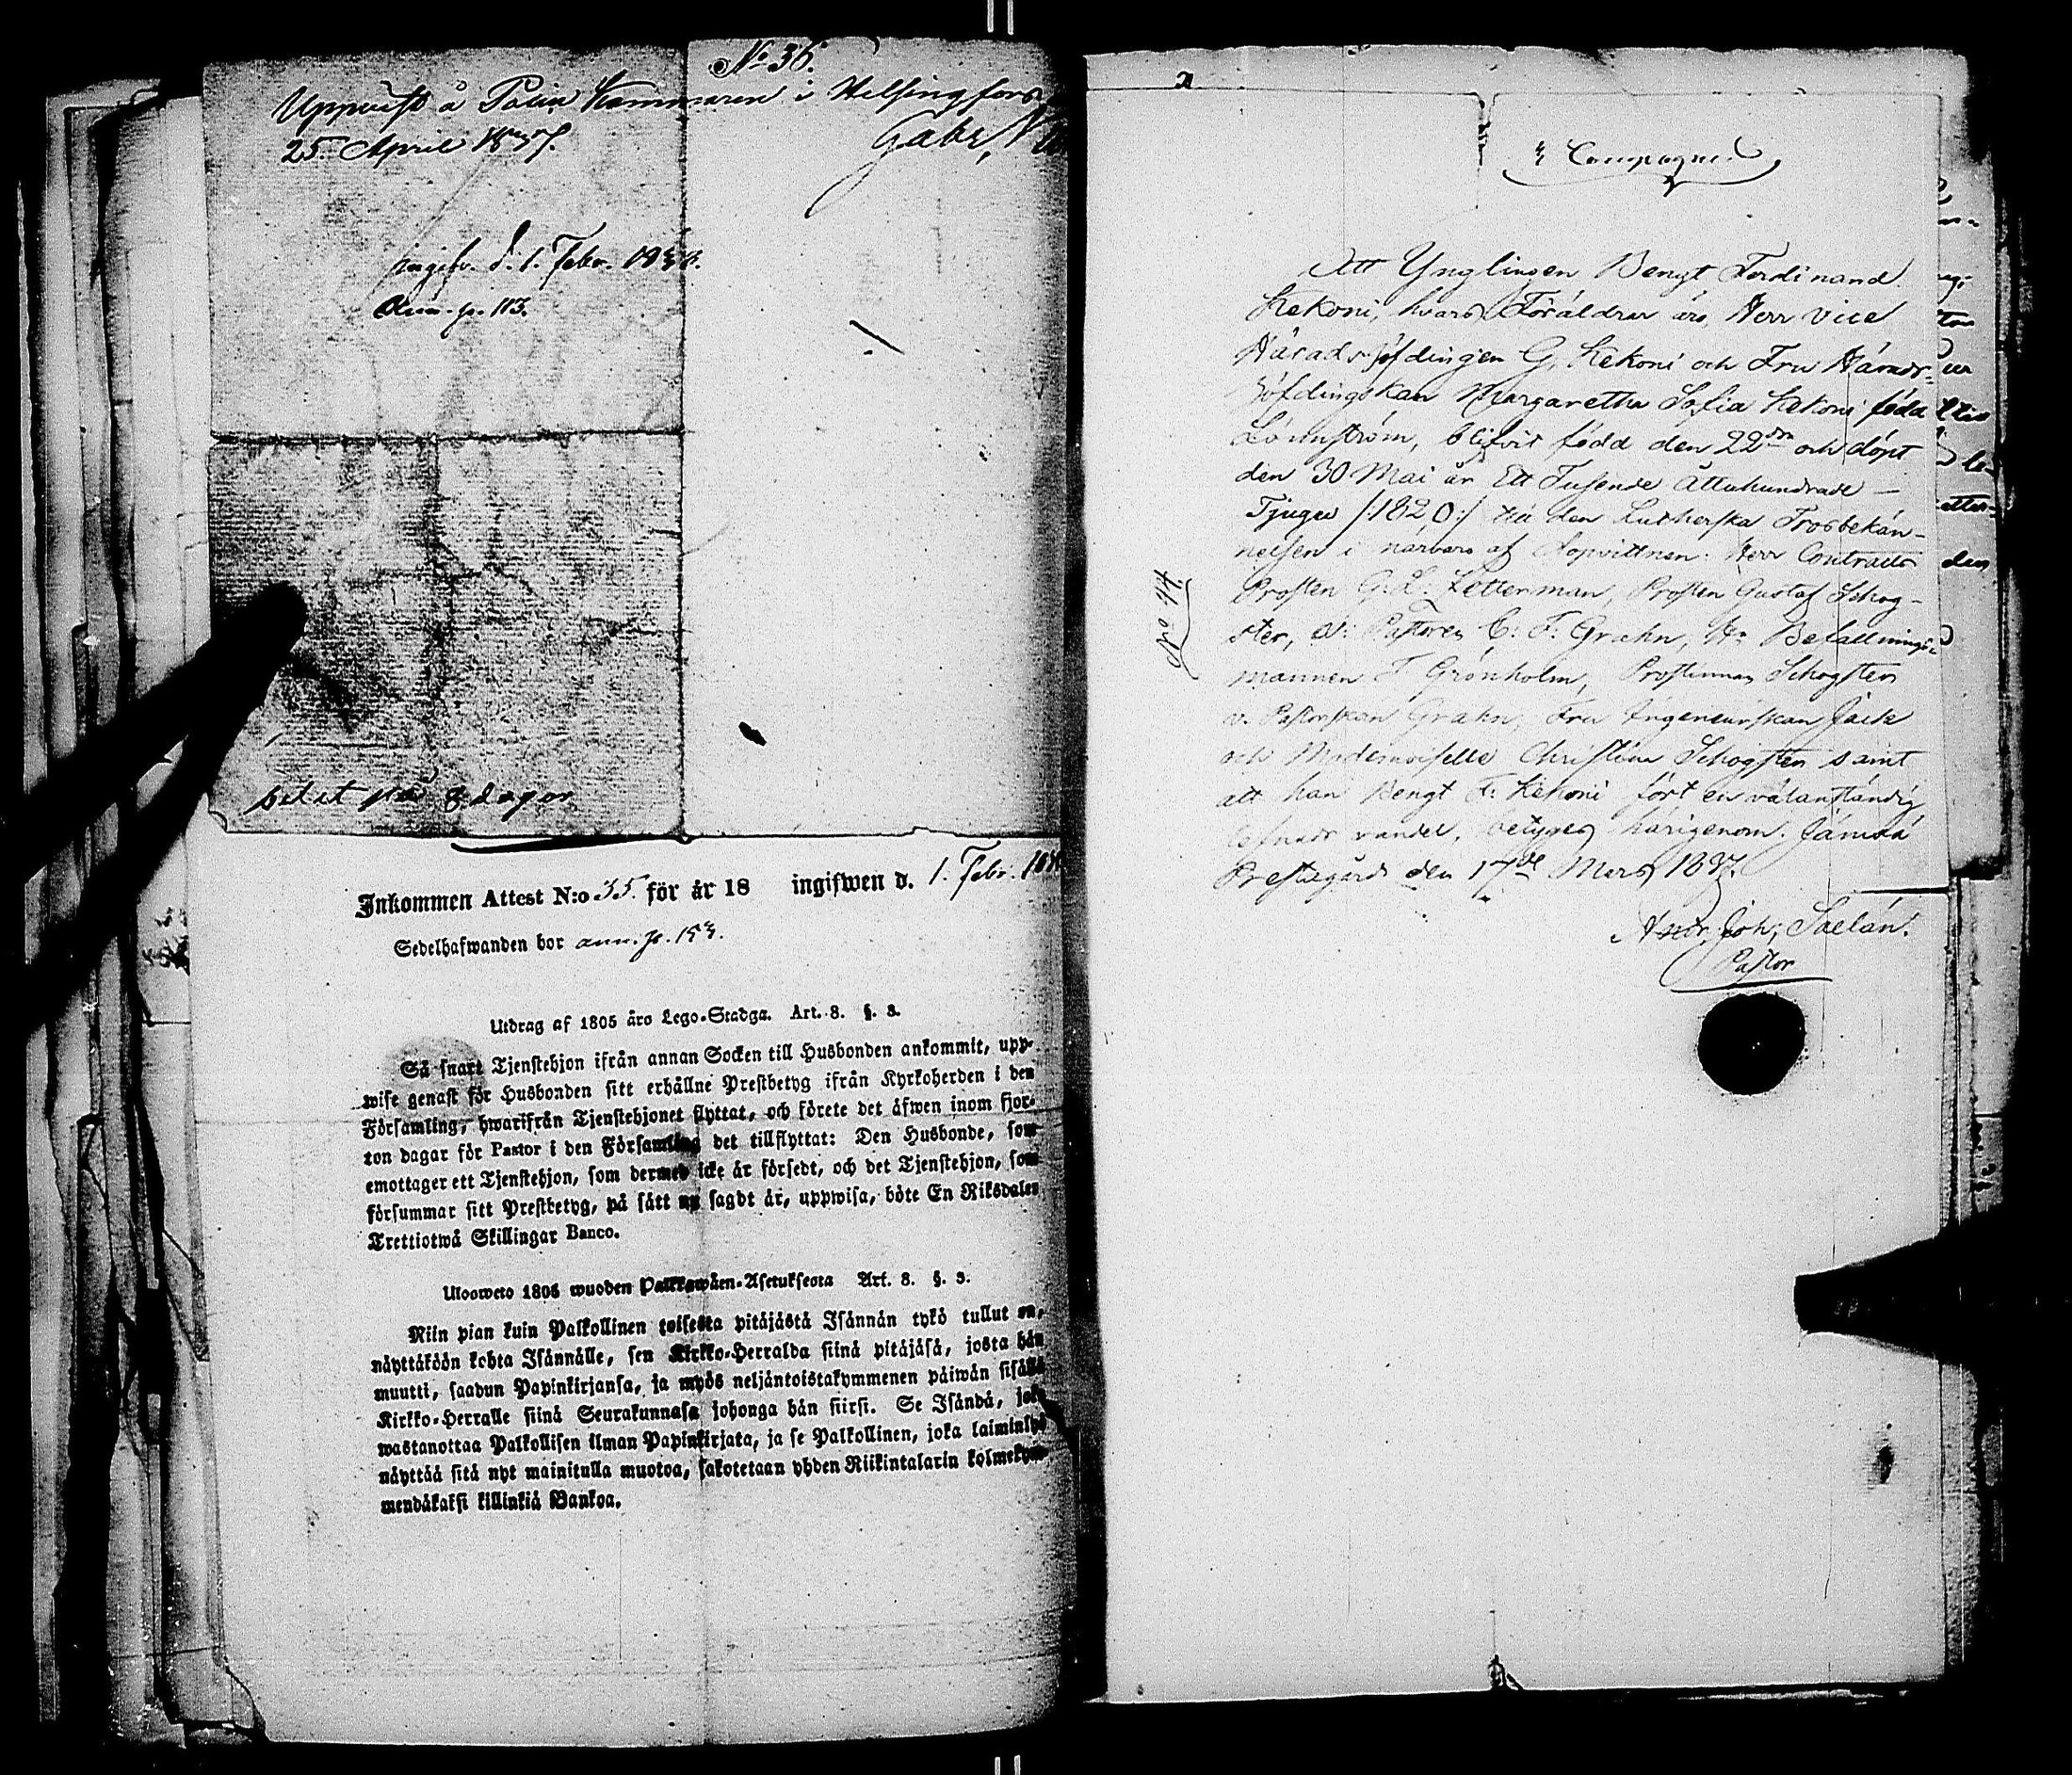 No 36.
Uppvist å Police Kammaren i Helsingfors
25 April 1837.
Gabr,
ingifv. d. 1. Febr.
Ann. p. 113.
på 8 dagar
Inkommen Attest N:o 35. för år 18 ingifwen d. 1. Febr.
Sedelhafwanden bor ann. p.
Utdrag af 1805 års Lego-Stadga. Art. 8. §. 3.
Så snart Tjenstehjon ifrån annan Socken till Husbonden ankommit, upp-
wise genast för Husbonden sitt erhållne Prestbetyg ifrån Kyrkoherden i den
Församling, hwarifrån Tjenstehjonet flyttat, och förete det äfwen inom fjor-
ton dagar för Pastor i den Församling det tillflyttat: Den Husbonde, som
emottager ett Tjenstehjon, som dermed icke är försedt, och det Tjenstehjon, som
försummar sitt Prestbetyg, på sätt nu sagdt är, uppwisa, böte En Riksdaler
Trettiotwå Skillingar Banco.
Uloswето 1805 wuoden Palkkawäen-Asetuksesta Art. 8. §. 3.
Niin pian kuin Palkollinen toisesta pitäjästä Isännän tykö tullut on,
näyttäköön kohta Isännälle, sen Kirkko-Herralda siinä pitäjäsä, josta hän
muutti, saadun Papinkirjansa, ja myös neljäntoistakymmenen päiwän sisällä
Kirkko-Herralle siinä Seurakunnasa johonga hän siirsi. Se Isändä, joka
wastanottaa Palkollisen ilman Papinkirjata, ja se Palkollinen, joka laiminlyö
näyttää sitä nyt mainitulla muotoa, sakotetaan yhden Riikintalarin kolmekym-
mendäkaksi killinkiä Bankoa.
2
Att Ynglingen Bengt Ferdinand
Kekoni, hvars Föräldrar äro Herr Vice
Häradshöfdingen G. Kekoni och Fru Härads-
höfdingskan Margaretha Sofia Kekoni född
Lönnström, blifvit född den 22dra och döpt
den 30 Mai år Ett Tusende Åttahundrade
Tjugu /:1820:/ uti den Lutherska Trosbekän-
nelsen i närvaro af Dopvittnen: Herr Contracts
Prosten G. L. Zetterman, Prosten Gustaf Schog-
ster, v: Pastoren C: F: Grahn, Hr Befallnings-
mannen F Grönholm, Prostinnan Schogsten
v. Pastorskan Grahn, Fru Ingenieurskan Jack
och Mademoiselle Christina Schogsten samt
att han Bengt F: Kekoni fört en välanständig
lefnads vandel, betygas härigenom. Jämsä
Prestegård den 17de Mars 1837.
Andr. Joh; Saelan.
Pastor
No 14